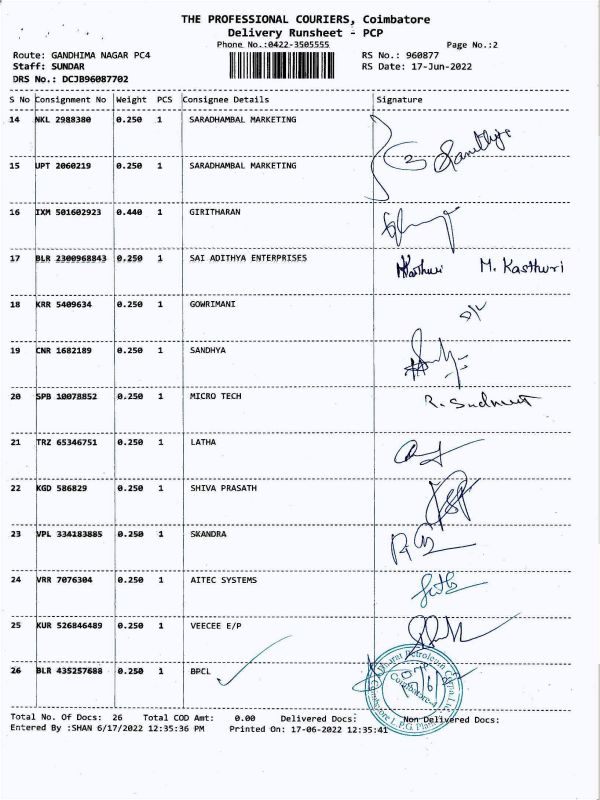 THE PROFESSIONAL COURIERS, Coimbatore
Delivery Runsheet - PCP
Phone No.:0422-3505555
Page No.:2
Route: GANDHIMA NAGAR PC4
RS No.: 960877
Staff: SUNDAR
RS Date: 17-Jun-2022
DRS No.: DCJB96087702
S No Consignment No Weight PCS Consignee Details Signature
14 NKL 2988380 0.250 1 SARADHAMBAL MARKETING
15 UPT 2060219 0.250 1 SARADHAMBAL MARKETING
16 IXM 501602923 0.440 1 GIRITHARAN
17 BLR 2300968843 0.250 1 SAI ADITHYA ENTERPRISES M. Kasthuri
18 KRR 5409634 0.250 1 GOWRIMANI
19 CNR 1682189 0.250 1 SANDHYA
20 SPB 10078852 0.250 1 MICRO TECH
21 TRZ 65346751 0.250 1 LATHA
22 KGD 586829 0.250 1 SHIVA PRASATH
23 VPL 334183885 0.250 1 SKANDRA
24 VRR 7076304 0.250 1 AITEC SYSTEMS
25 KUR 526846489 0.250 1 VEECEE E/P
26 BLR 435257688 0.250 1 BPCL
Total No. Of Docs: 26 Total COD Amt: 0.00 Delivered Docs: Non Delivered Docs:
Entered By :SHAN 6/17/2022 12:35:36 PM Printed On: 17-06-2022 12:35:41